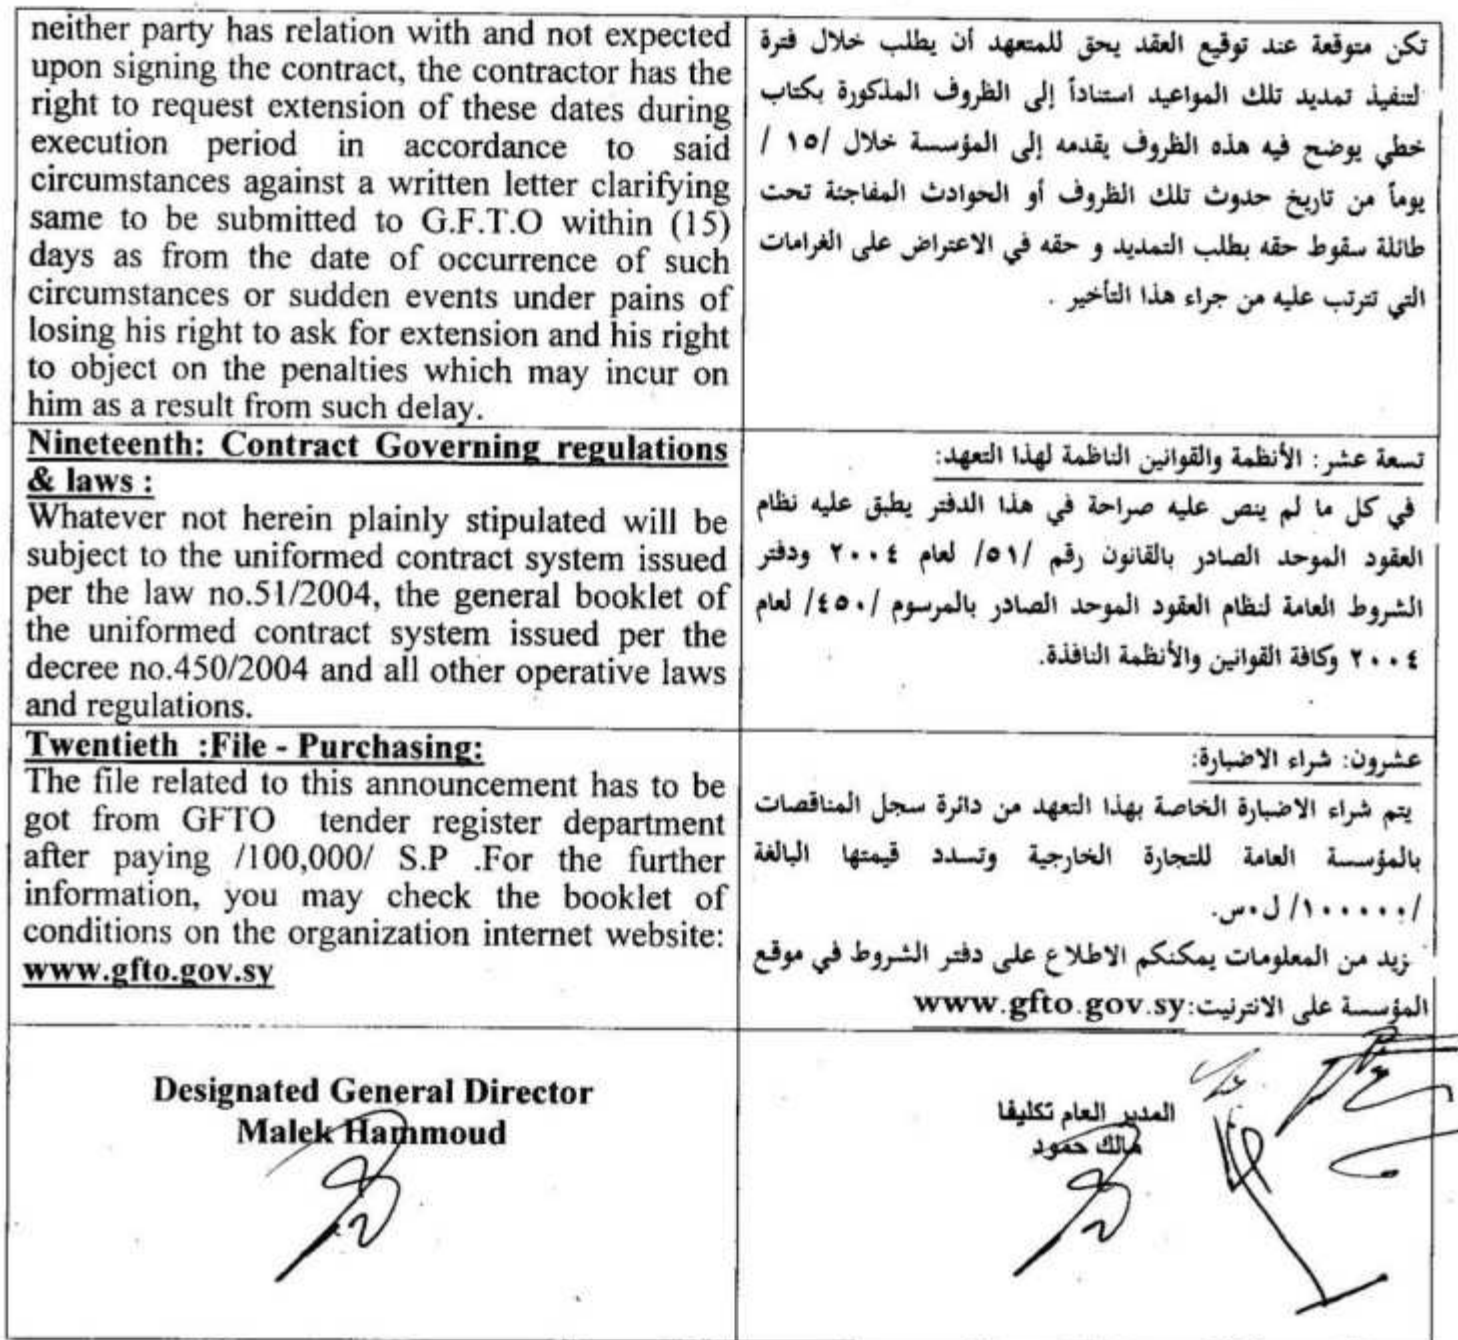 neither party has relation with and not expected
upon signing the contract, the contractor has the
right to request extension of these dates during
execution period in accordance to said
circumstances against a written letter clarifying
same to be submitted to G.F.T.O within (15)
days as from the date of occurrence of such
circumstances or sudden events under pains of
losing his right to ask for extension and his right
to object on the penalties which may incur on
him as a result from such delay.
تكن متوقعة عند توقيع العقد يحق للمتعهد أن يطلب خلال فترة
لتنفيذ تمديد تلك المواعيد استناداً إلى الظروف المذكورة بكتاب
خطي يوضح فيه هذه الظروف يقدمه إلى المؤسسة خلال /١٥ /
يوماً من تاريخ حدوث تلك الظروف أو الحوادث المفاجئة تحت
طائلة سقوط حقه بطلب التمديد و حقه في الاعتراض على الغرامات
التي تترتب عليه من جراء هذا التأخير .
Nineteenth: Contract Governing regulations
& laws :
Whatever not herein plainly stipulated will be
subject to the uniformed contract system issued
per the law no.51/2004, the general booklet of
the uniformed contract system issued per the
decree no.450/2004 and all other operative laws
and regulations.
تسعة عشر: الأنظمة والقوانين الناظمة لهذا التعهد:
في كل ما لم ينص عليه صراحة في هذا الدفتر يطبق عليه نظام
العقود الموحد الصادر بالقانون رقم /٥١/ لعام ٢٠٠٤ ودفتر
الشروط العامة لنظام العقود الموحد الصادر بالمرسوم /٤٥٠/ لعام
٢٠٠٤ وكافة القوانين والأنظمة النافذة.
Twentieth :File - Purchasing:
The file related to this announcement has to be
got from GFTO tender register department
after paying /100,000/ S.P .For the further
information, you may check the booklet of
conditions on the organization internet website:
www.gfto.gov.sy
عشرون: شراء الاضبارة:
يتم شراء الاضبارة الخاصة بهذا التعهد من دائرة سجل المناقصات
بالمؤسسة العامة للتجارة الخارجية وتسدد قيمتها البالغة
/١٠٠٠٠٠/ ل.س.
زيد من المعلومات يمكنكم الاطلاع على دفتر الشروط في موقع
المؤسسة على الانترنيت:www.gfto.gov.sy
Designated General Director
Malek Hammoud
المدير العام تكليفا
مالك حمود